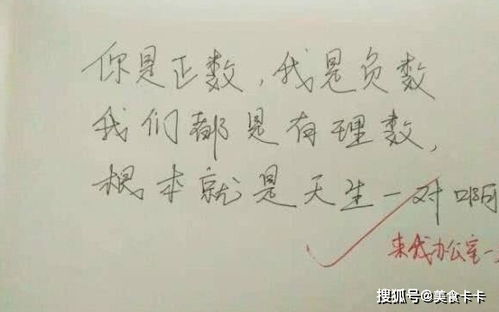 你是正数,我是负数
我们都是有理数,
根本就是天生一对啊
来我办公室一
搜狐号@美食卡卡